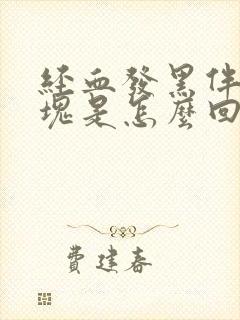 經血發黑伴
塊是怎麼回
費建春